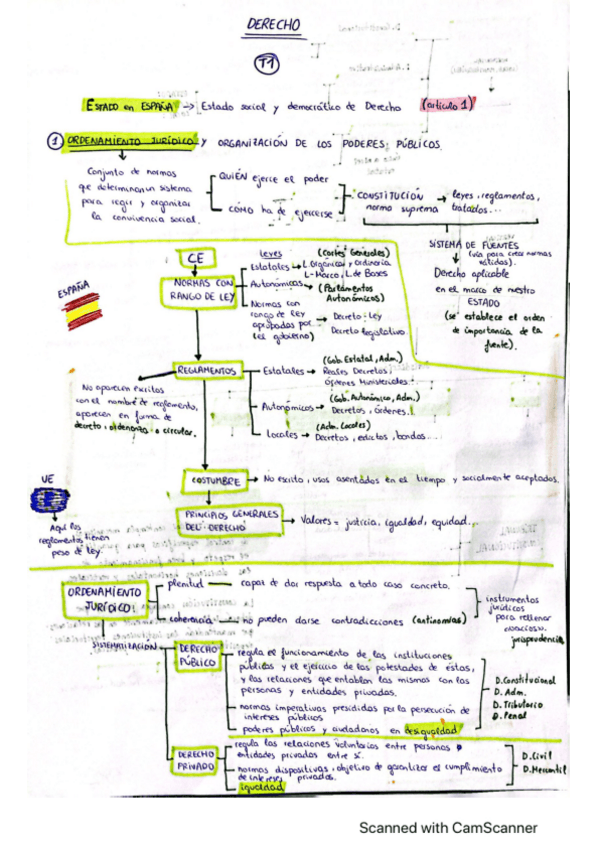 DERECHO
T1
ESTADO en ESPAÑA → Estado social y democrático de Derecho (artículo 1)
① ORDENAMIENTO JURÍDICO y ORGANIZACIÓN DE LOS PODERES PÚBLICOS.
Conjunto de normas
que determinan un sistema
para regir y organizar
la convivencia social.
QUIÉN ejerce el poder
CÓMO ha de ejercerse
CONSTITUCIÓN → leyes, reglamentos,
norma suprema tratados...
SISTEMA DE FUENTES
(vía para crear normas
válidas).
Derecho aplicable
en el marco de nuestro
ESTADO
(se establece el orden
de importancia de la
fuente).
ESPAÑA
CE
NORMAS CON
RANGO DE LEY
Leyes (Cortes Generales)
Estatales → L. Orgánica y Ordinaria
L-Marco, L. de Bases
Autonómicas → (Parlamentos
Autonómicos)
Normas con
rango de ley → Decreto-Ley
aprobadas por Decreto legislativo
(el gobierno)
REGLAMENTOS
(Gob. Estatal, Adm.)
Estatales → Reales Decretos,
Órdenes Ministeriales
(Gob. Autonómico, Adm.)
Autonómicos → Decretos, órdenes...
(Adm. Locales)
Locales → Decretos, edictos, bandos...
No aparecen escritos
con el nombre de reglamento,
aparecen en forma de
decreto, ordenanza o circular.
COSTUMBRE → No escrito, usos asentados en el tiempo y socialmente aceptados.
UE
Aquí los
reglamentos tienen
peso de ley.
PRINCIPIOS GENERALES
DEL DERECHO → Valores = justicia, igualdad, equidad...
ORDENAMIENTO
JURÍDICO:
plenitud — capaz de dar respuesta a todo caso concreto.
coherencia — no pueden darse contradicciones (antinomias)
instrumentos
jurídicos
para rellenar
jurisprudencia
SISTEMATIZACIÓN
DERECHO
PÚBLICO
regula el funcionamiento de las instituciones
públicas y el ejercicio de las potestades de éstas,
y las relaciones que entablan las mismas con las
personas y entidades privadas.
normas imperativas presididas por la persecución de
intereses públicos
poderes públicos y ciudadanos en desigualdad
D. Constitucional
D. Adm.
D. Tributario
D. Penal
DERECHO
PRIVADO
regula las relaciones voluntarias entre personas o
entidades privadas entre sí.
normas dispositivas, objetivo de garantizar el cumplimiento
de intereses privados.
igualdad
D. Civil
D. Mercantil
Scanned with CamScanner